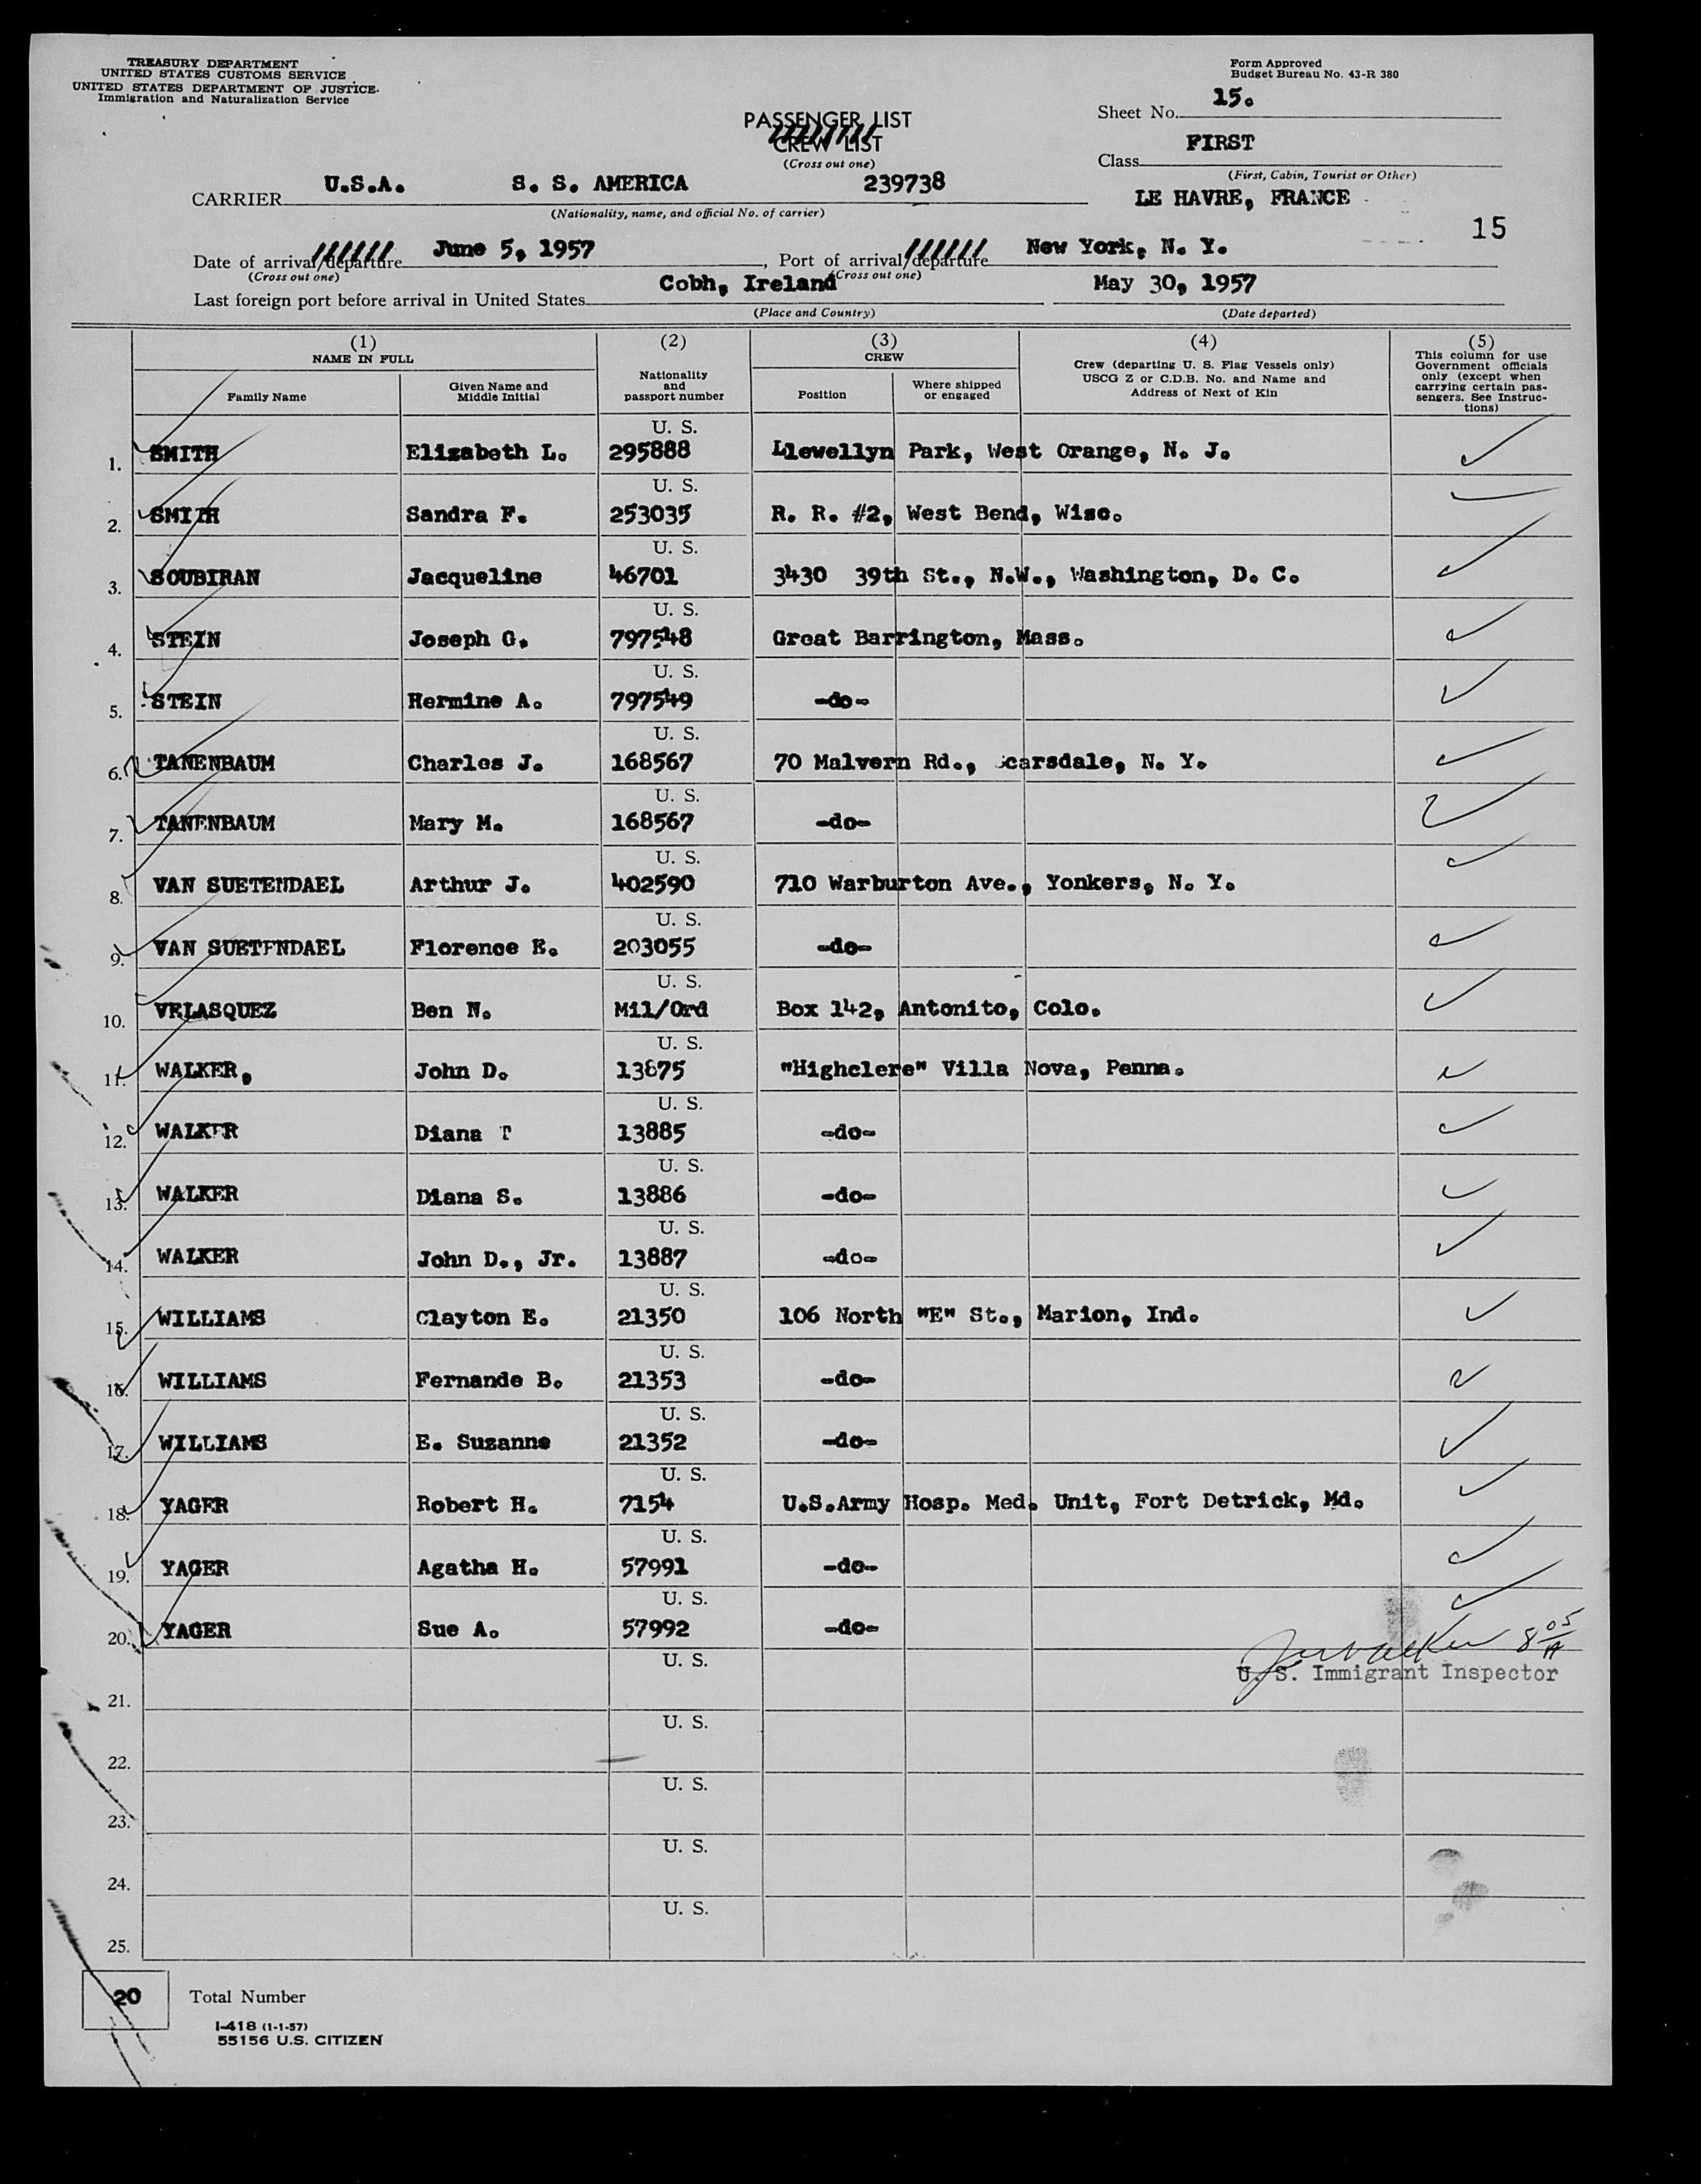 TREASURY DEPARTMENT
UNITED STATES CUSTOMS SERVICE
UNITED STATES DEPARTMENT OF JUSTICE
Immigration and Naturalization Service
Form Approved
Budget Bureau No. 43-R 380
Sheet No. 15.
PASSENGER LIST
CREW LIST
(Cross out one)
Class FIRST
(First, Cabin, Tourist or Other)
CARRIER U.S.A. S. S. AMERICA 239738
(Nationality, name, and official No. of carrier)
LE HAVRE, FRANCE
15
Date of arrival/departure June 5, 1957, Port of arrival/departure New York, N. Y.
(Cross out one) (Cross out one)
Last foreign port before arrival in United States Cobh, Ireland May 30, 1957
(Place and Country) (Date departed)
(1) NAME IN FULL
Family Name
Given Name and Middle Initial
(2) Nationality and passport number
(3) CREW
Position
Where shipped or engaged
(4) Crew (departing U. S. Flag Vessels only) USCG Z or C.D.B. No. and Name and Address of Next of Kin
(5) This column for use Government officials only (except when carrying certain passengers. See Instructions)
U. S.
1. SMITH Elizabeth L. 295888 Llewellyn Park, West Orange, N. J.
U. S.
2. SMITH Sandra F. 253035 R. R. #2, West Bend, Wisc.
U. S.
3. SOUBIRAN Jacqueline 46701 3430 39th St., N.W., Washington, D. C.
U. S.
4. STEIN Joseph G. 797548 Great Barrington, Mass.
U. S.
5. STEIN Hermine A. 797549 -do-
U. S.
6. TANENBAUM Charles J. 168567 70 Malvern Rd., Scarsdale, N. Y.
U. S.
7. TANENBAUM Mary M. 168567 -do-
U. S.
8. VAN SUETENDAEL Arthur J. 402590 710 Warburton Ave., Yonkers, N. Y.
U. S.
9. VAN SUETENDAEL Florence E. 203055 -do-
U. S.
10. VELASQUEZ Ben N. Mil/Ord Box 142, Antonito, Colo.
U. S.
11. WALKER, John D. 13875 "Highclere" Villa Nova, Penna.
U. S.
12. WALKER Diana T 13885 -do-
U. S.
13. WALKER Diana S. 13886 -do-
U. S.
14. WALKER John D., Jr. 13887 -do-
U. S.
15. WILLIAMS Clayton E. 21350 106 North "E" St., Marion, Ind.
U. S.
16. WILLIAMS Fernande B. 21353 -do-
U. S.
17. WILLIAMS E. Suzanne 21352 -do-
U. S.
18. YAGER Robert H. 7154 U.S.Army Hosp. Med. Unit, Fort Detrick, Md.
U. S.
19. YAGER Agatha H. 57991 -do-
U. S.
20. YAGER Sue A. 57992 -do-
U. S. Immigrant Inspector
U. S.
21.
U. S.
22.
U. S.
23.
U. S.
24.
U. S.
25.
20 Total Number
I-418 (1-1-57)
55156 U.S. CITIZEN